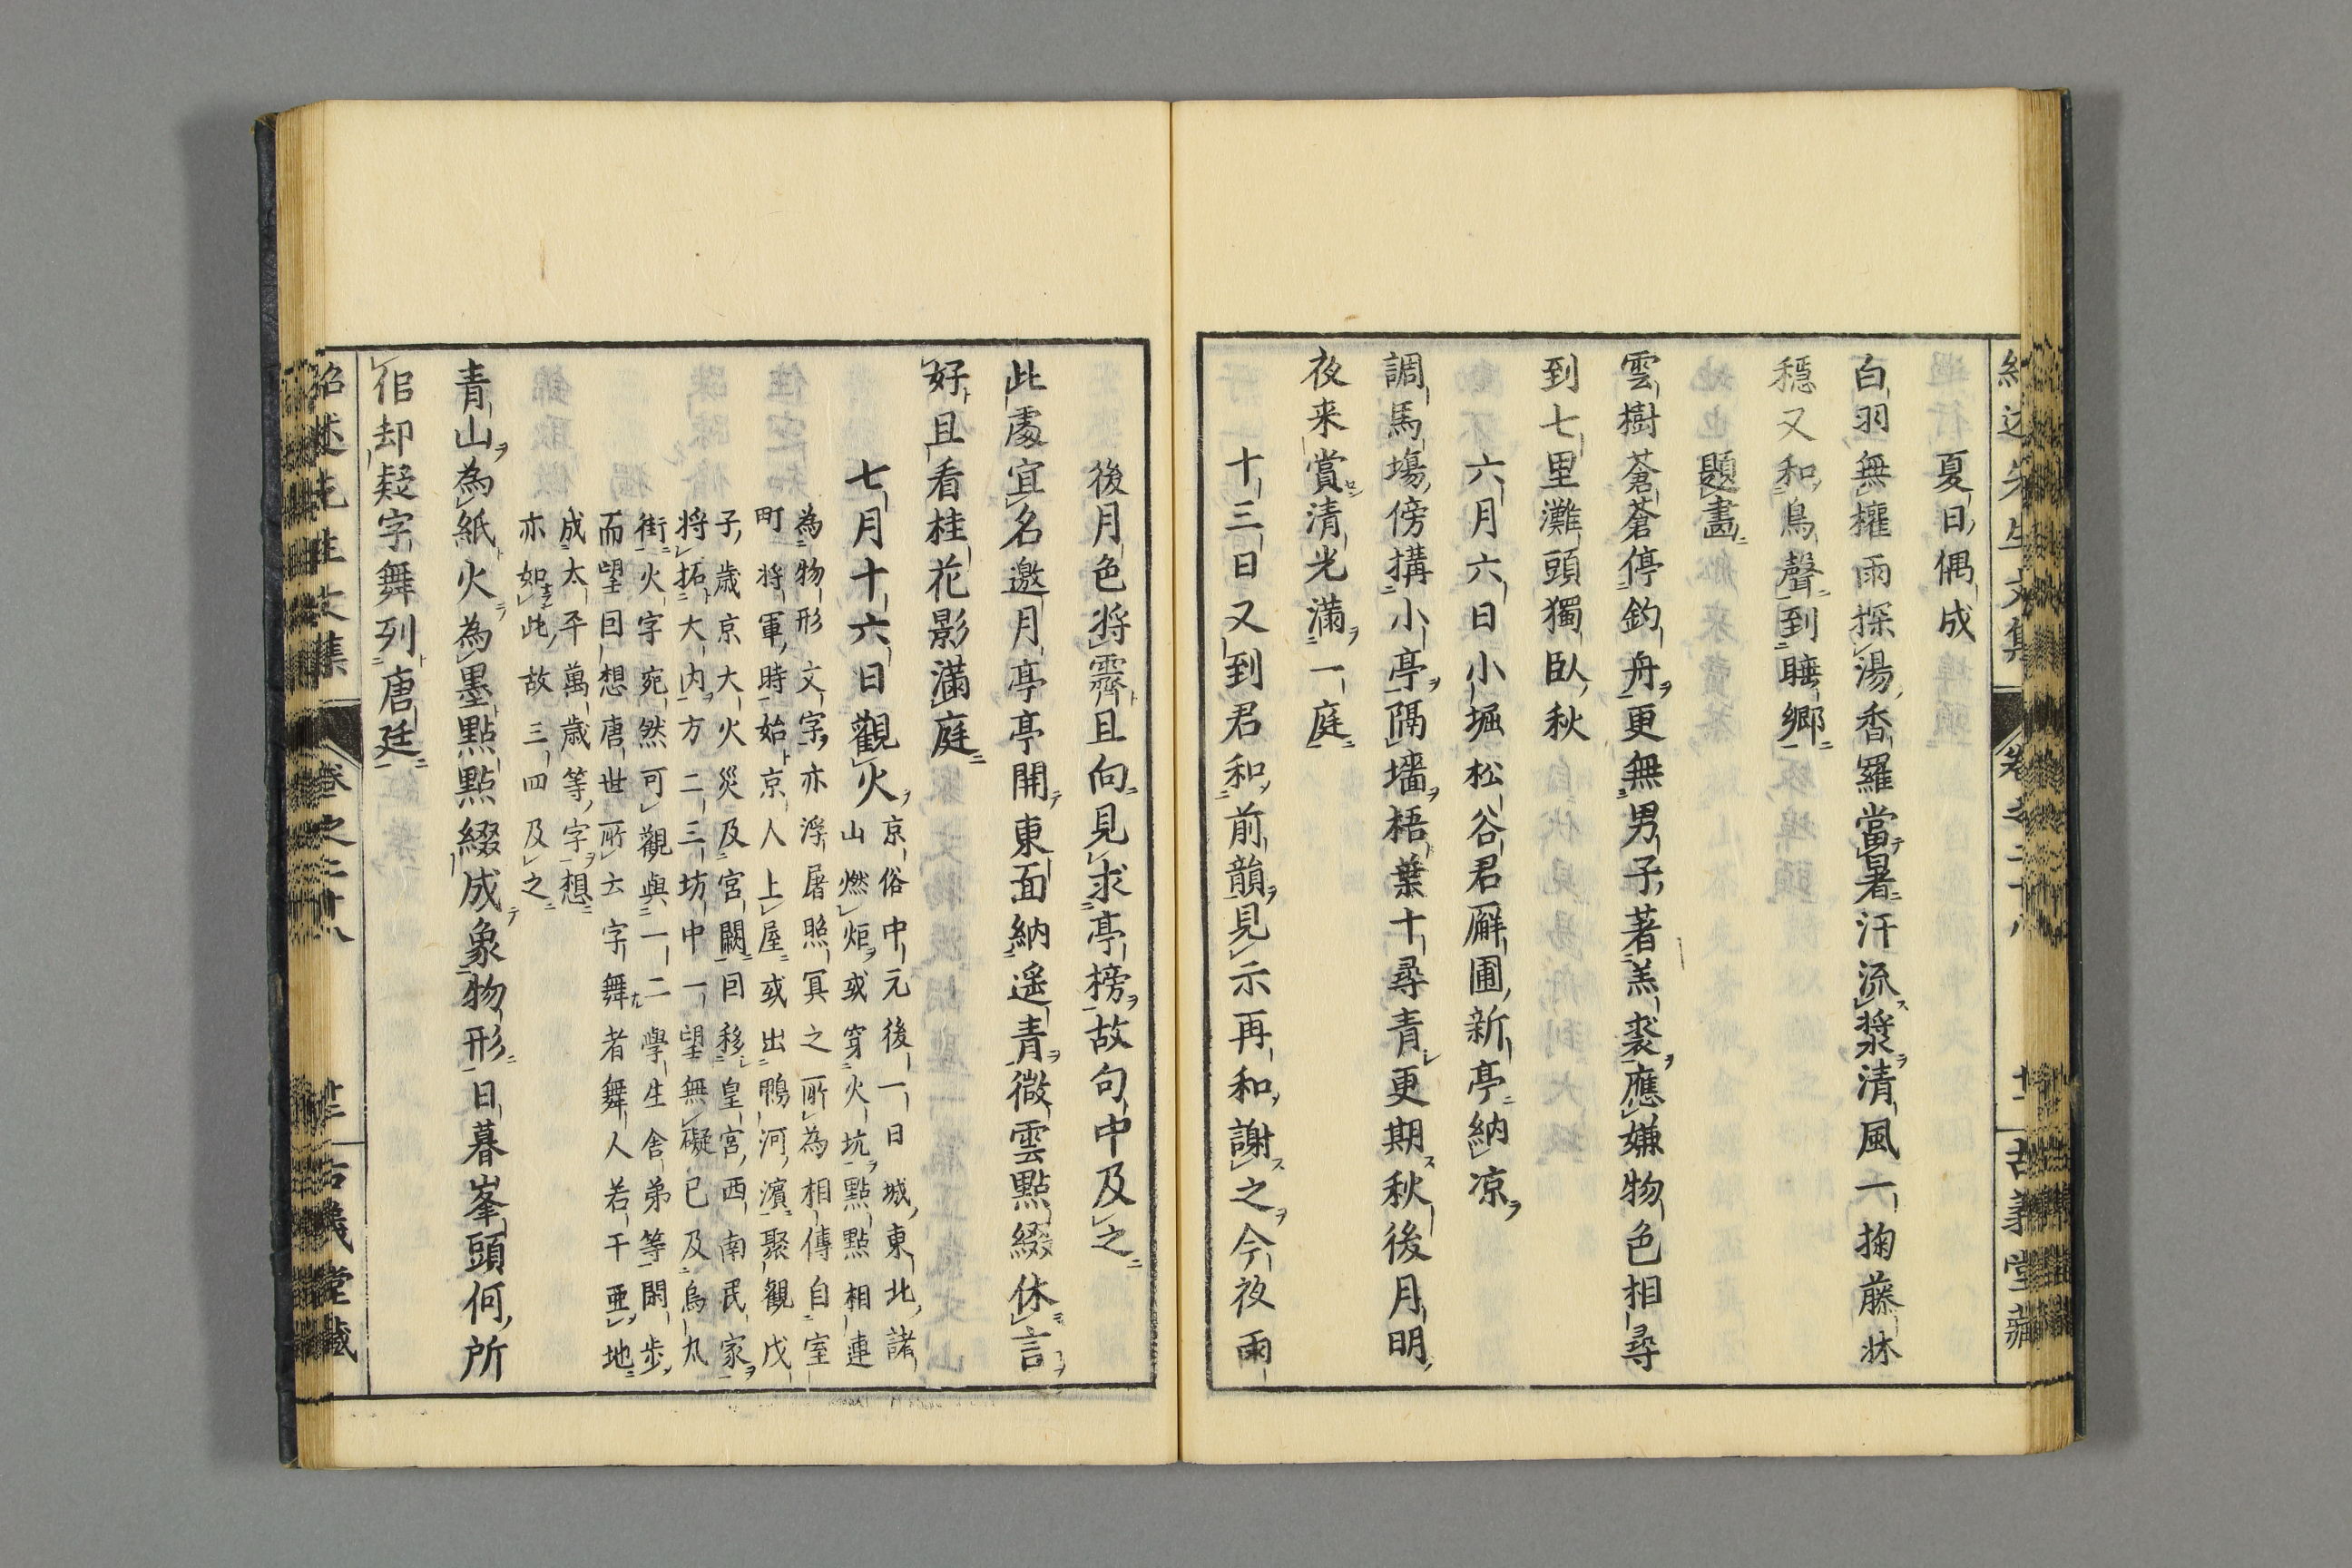 夏日偶成
白羽無權雨探湯香羅當暑汗流漿清風一掬藤牀
穩又和鳥聲到睡郷
題畵
雲樹蒼蒼停釣舟更無男子著羔裘應嫌物色相尋
到七里灘頭獨臥秋
六月六日小堀松谷君廨圃新亭納凉
調馬塲傍搆小亭隔墻梧葉十尋青更期秋後月明
夜来賞清光滿一庭
十三日又到君和前韻見示再和謝之今夜雨
後月色将霽且向見求亭榜故句中及之
此處宜名邀月亭亭開東面納遥青微雲點綴休言
好且看桂花影滿庭
七月十六日觀火
京俗中元後一日城東北諸
山燃炬或穿火坑點點相連
為物形文字亦浮屠照冥之所為相傳自室
町将軍時始京人上屋或出鴨河濱聚觀戊
子歳京大火災及宮闕囙移皇宮西南民家
将拓大内方二三坊中一望無礙已及烏丸
街火字宛然可觀與一二學生舍弟等閑步
而望囙想唐世所云字舞者舞人若干亜地
成太平萬歳等字想
亦如此故三四及之
青山為紙火為墨點點綴成象物形日暮峯頭何所
佀却疑字舞列唐廷
紹述先生文集
卷之二十八
廿二
古義堂藏